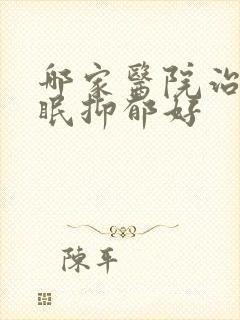 哪家醫院治
眠抑郁好
陳平